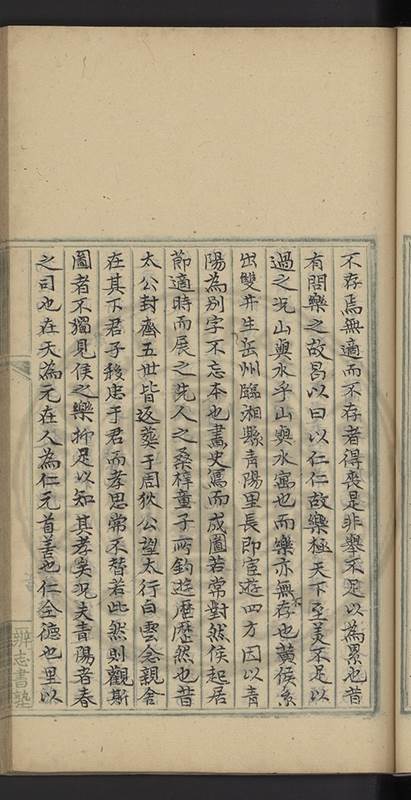 不存焉無適而不存者得喪是非舉不足以為累也昔
有問樂之故曷以曰以仁仁故樂極天下至美不足以
過之况山與水乎山與水寓也而樂亦無不存也黄侯系
出雙井生岳州臨湘縣青陽里長即宦遊四方因以青
陽為别字不忘本也畫史寫而成圖若常對然侯起居
節適時而展之先人之桑梓童子所釣遊歴歴然也昔
太公封齊五世皆返葬于周狄公望太行白雲念親舍
在其下君子移忠于君而孝思常不替若此然則觀斯
圖者不獨見侯之樂抑足以知其孝矣况夫青陽者春
之司也在天為元在人為仁元首善也仁全德也里以
辨志書塾